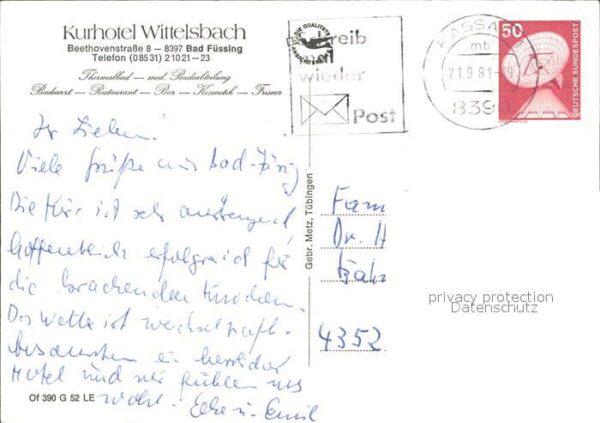 Kurhotel Wittelsbach
Beethovenstraße 8 – 8397 Bad Füssing
Telefon (08531) 21021 – 23
Thermalbad — med. Badeabteilung
Badearzt — Restaurant — Bar — Kosmetik — Friseur
Schreib mal wieder
Post
PASSAU
mb
21.9.81-19
8390
50
DEUTSCHE BUNDESPOST
Ihr Lieben!
Viele Grüße aus Bad-Füssing
Die Kur ist sehr anstrengend,
hoffentlich erfolgreich für
die krachenden Knochen.
Das Wetter ist wechselhaft.
ein herrliches
Hotel und wir fühlen uns
wohl. u. Emil
Gebr. Metz, Tübingen
Fam
Dr. H
4352
privacy protection
Datenschutz
Of 390 G 52 LE